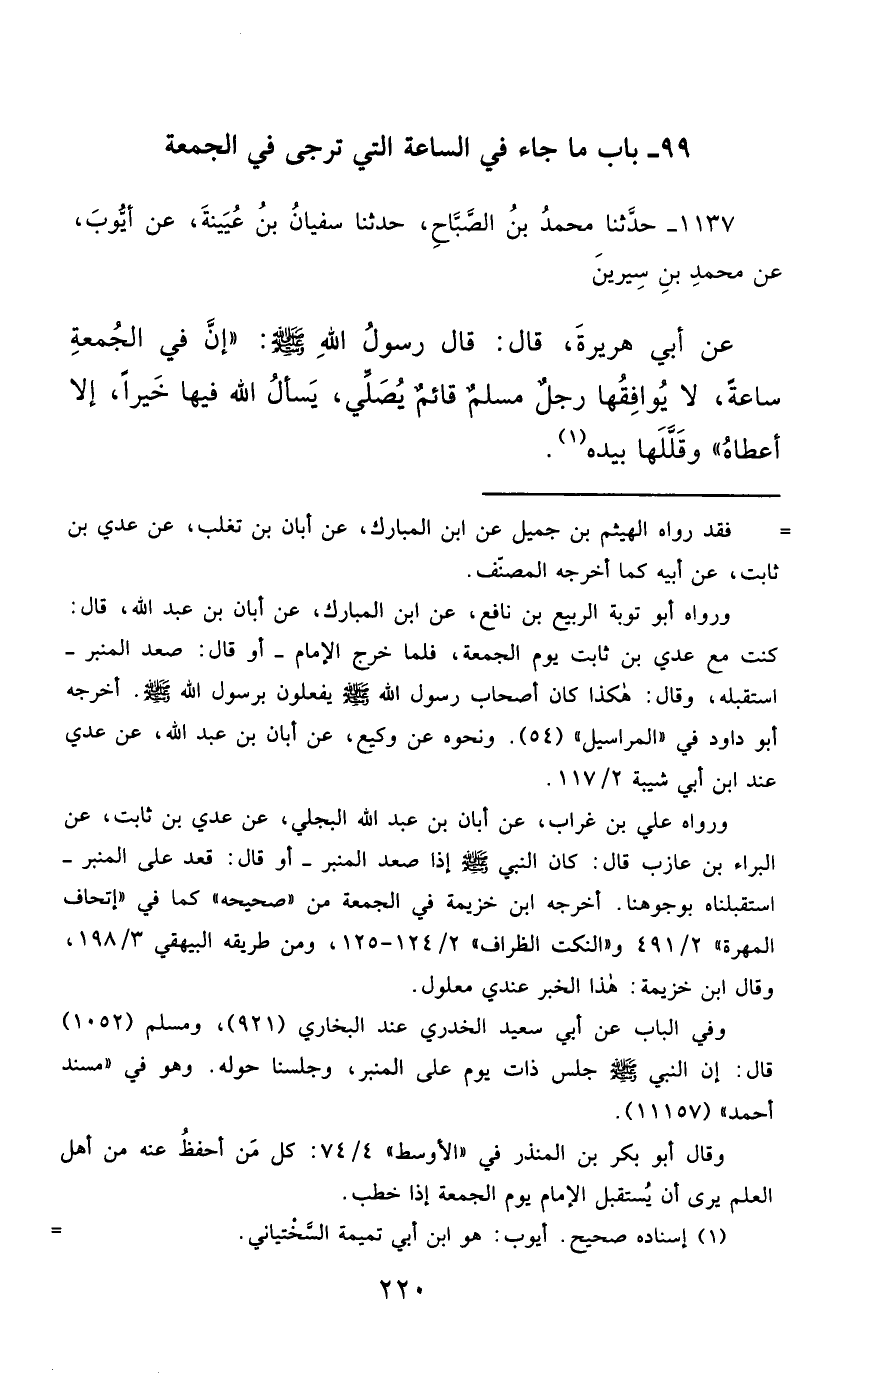 ٩٩ـ باب ما جاء في الساعة التي ترجى في الجمعة
١١٣٧ـ حدَّثنا محمدُ بنُ الصَّبَّاحِ، حدثنا سفيانُ بنُ عُيَينةَ، عن أيُّوبَ،
عن محمدِ بنِ سِيرينَ
عن أبي هريرةَ، قال: قال رسولُ اللهِ ﷺ: «إنَّ في الجُمعةِ
ساعةً، لا يُوافِقُها رجلٌ مسلمٌ قائمٌ يُصَلِّي، يَسألُ الله فيها خَيراً، إلا
أعطاهُ» وقَلَّلَها بيده(١).
= فقد رواه الهيثم بن جميل عن ابن المبارك، عن أبان بن تغلب، عن عدي بن
ثابت، عن أبيه كما أخرجه المصنّف.
ورواه أبو توبة الربيع بن نافع، عن ابن المبارك، عن أبان بن عبد الله، قال:
كنت مع عدي بن ثابت يوم الجمعة، فلما خرج الإمام ـ أو قال: صعد المنبر ـ
استقبله، وقال: هٰكذا كان أصحاب رسول الله ﷺ يفعلون برسول الله ﷺ. أخرجه
أبو داود في «المراسيل» (٥٤). ونحوه عن وكيع، عن أبان بن عبد الله، عن عدي
عند ابن أبي شيبة ٢/ ١١٧.
ورواه علي بن غراب، عن أبان بن عبد الله البجلي، عن عدي بن ثابت، عن
البراء بن عازب قال: كان النبي ﷺ إذا صعد المنبر ـ أو قال: قعد على المنبر ـ
استقبلناه بوجوهنا. أخرجه ابن خزيمة في الجمعة من «صحيحه» كما في «إتحاف
المهرة» ٢/ ٤٩١ و«النكت الظراف» ٢/ ١٢٤-١٢٥، ومن طريقه البيهقي ٣/ ١٩٨،
وقال ابن خزيمة: هٰذا الخبر عندي معلول.
وفي الباب عن أبي سعيد الخدري عند البخاري (٩٢١)، ومسلم (١٠٥٢)
قال: إن النبي ﷺ جلس ذات يوم على المنبر، وجلسنا حوله. وهو في «مسند
أحمد» (١١١٥٧).
وقال أبو بكر بن المنذر في «الأوسط» ٤/ ٧٤: كل مَن أحفظُ عنه من أهل
العلم يرى أن يُستقبل الإمام يوم الجمعة إذا خطب.
(١) إسناده صحيح. أيوب: هو ابن أبي تميمة السَّخْتياني. =
٢٢٠